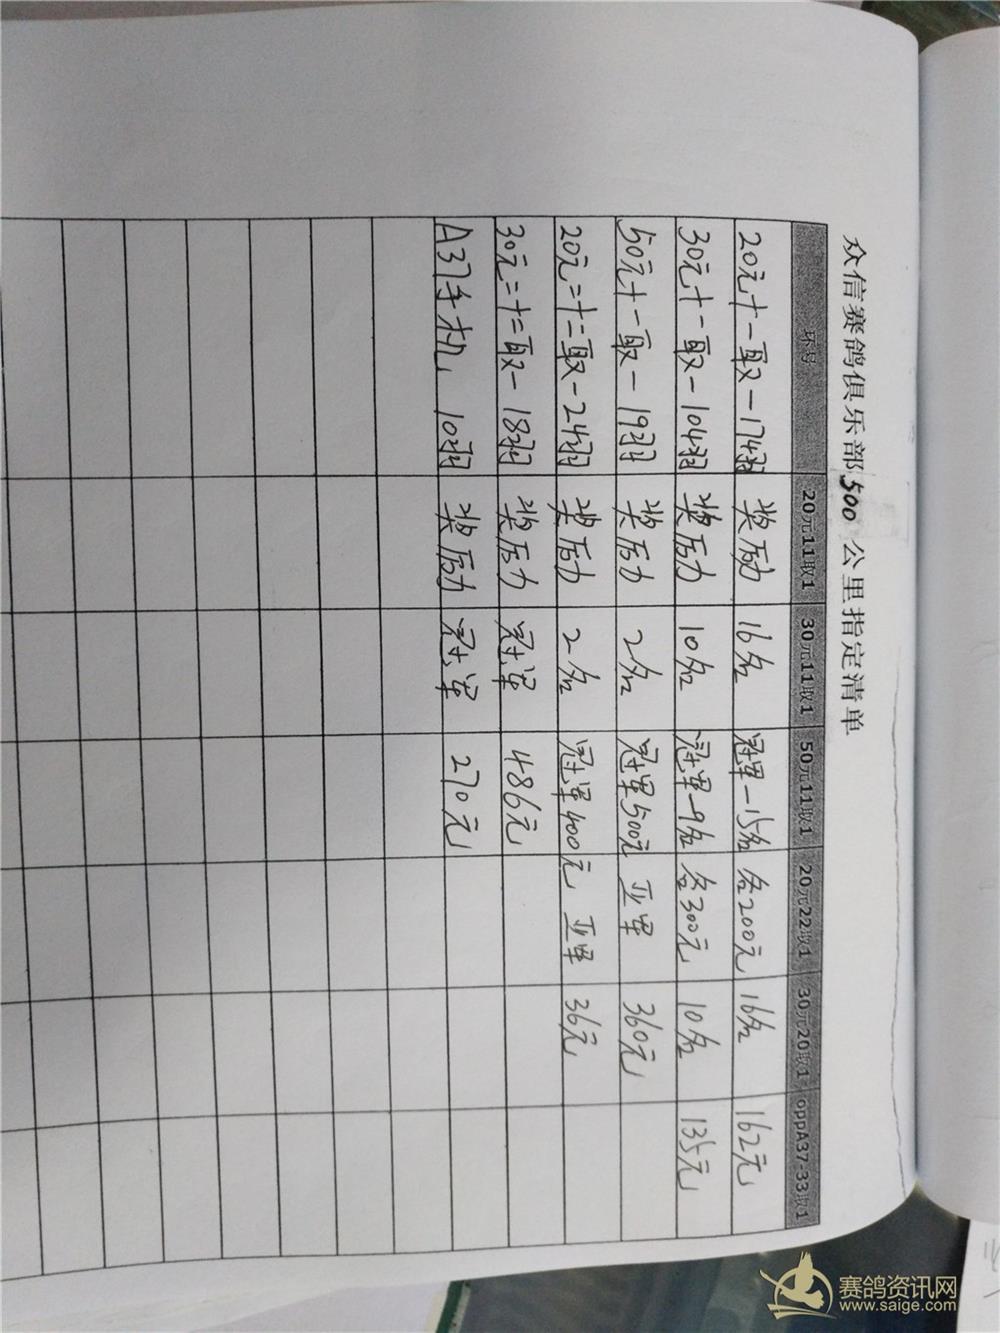 众信赛鸽俱乐部500公里指定清单
环号 20元11取1 30元11取1 50元11取1 20元22取1 30元20取1 oppA37-33取1
20元十一取一174羽 奖励 16名 冠军-15名 各200元 16名 162元
30元十一取一104羽 奖励 10名 冠军-9名 各300元 10名 135元
50元十一取一19羽 奖励 2名 冠军500元 亚军 360元
20元二十二取一24羽 奖励 2名 冠军400元 亚军 36元
30元二十二取一18羽 奖励 冠军 486元
A37手机 10羽 奖励 冠军 270元
赛鸽资讯网
www.saige.com